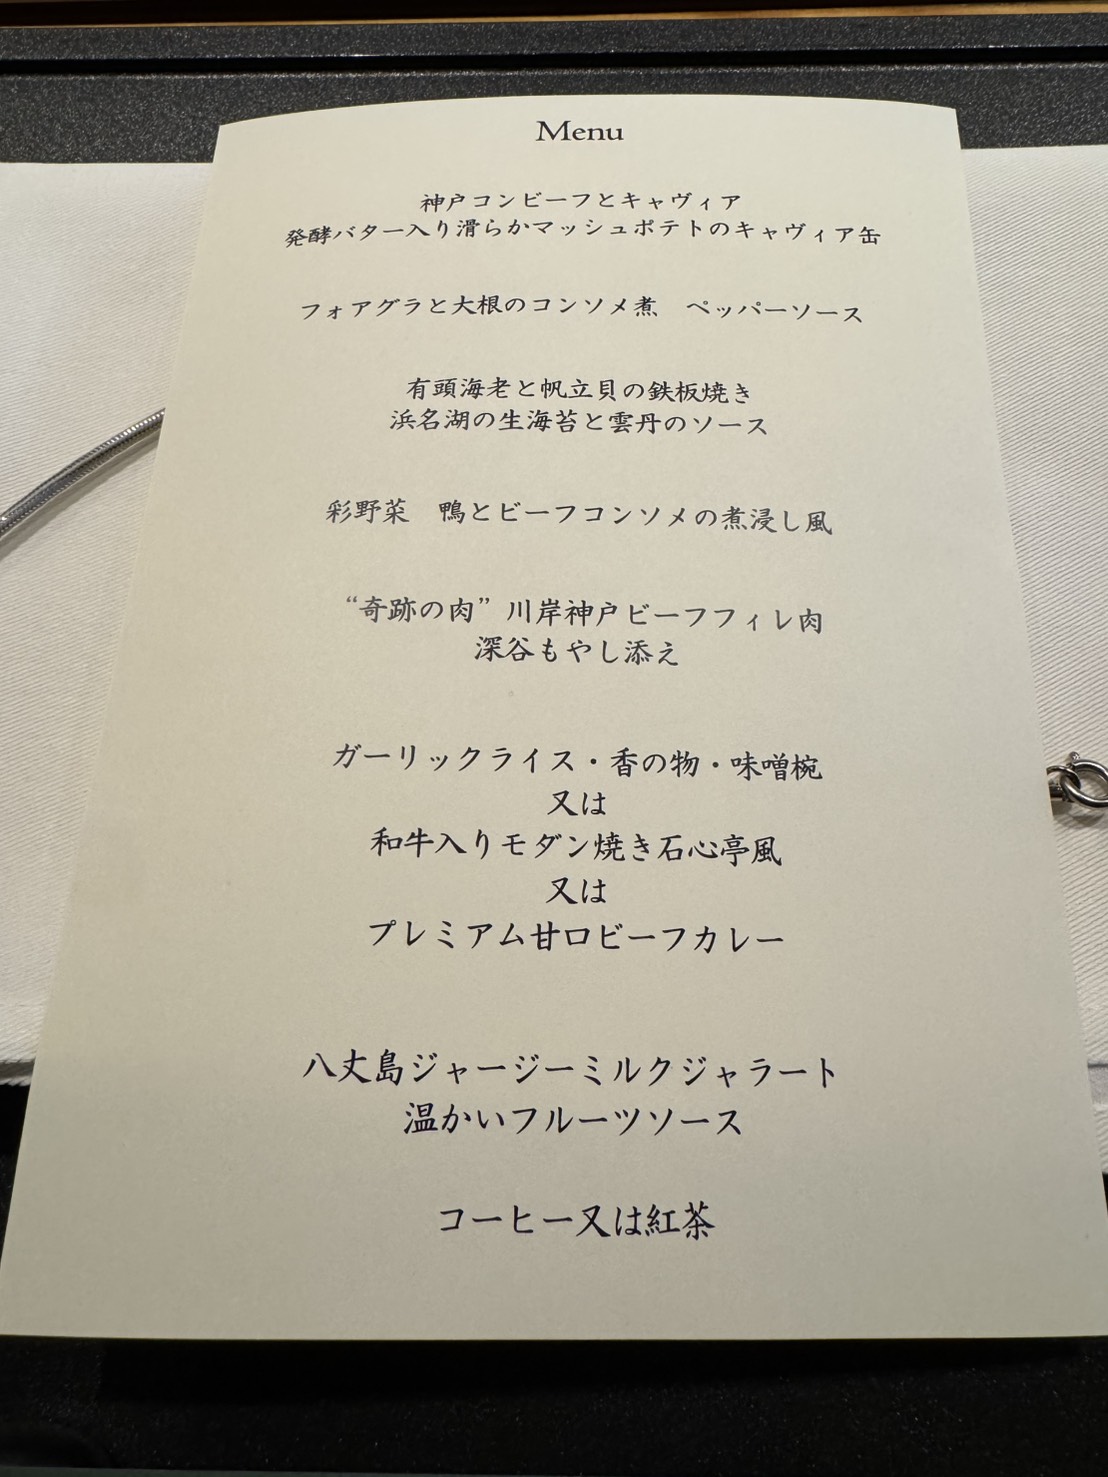 Menu
神戸コンビーフとキャヴィア
発酵バター入り滑らかマッシュポテトのキャヴィア缶
フォアグラと大根のコンソメ煮　ペッパーソース
有頭海老と帆立貝の鉄板焼き
浜名湖の生海苔と雲丹のソース
彩野菜　鴨とビーフコンソメの煮浸し風
“奇跡の肉”川岸神戸ビーフフィレ肉
深谷もやし添え
ガーリックライス・香の物・味噌椀
又は
和牛入りモダン焼き石心亭風
又は
プレミアム甘口ビーフカレー
八丈島ジャージーミルクジャラート
温かいフルーツソース
コーヒー又は紅茶